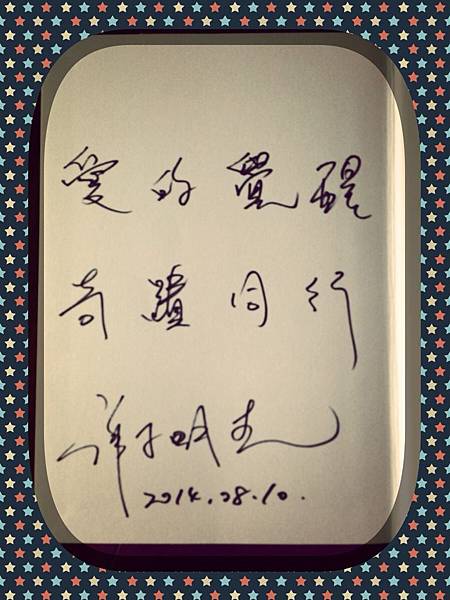 愛的覺醒
奇蹟同行
2014.08.10.